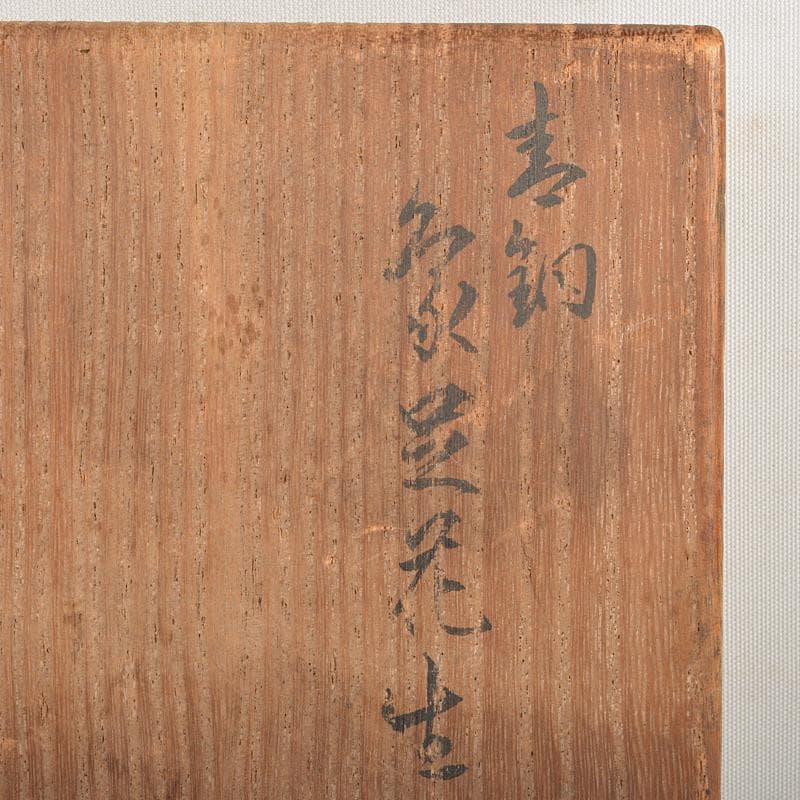 青銅
象足花生